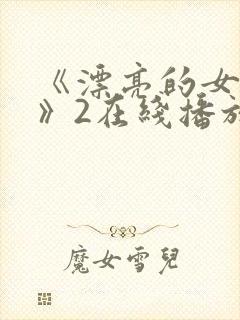 《漂亮的女
》2在綫播放
魔女雪兒